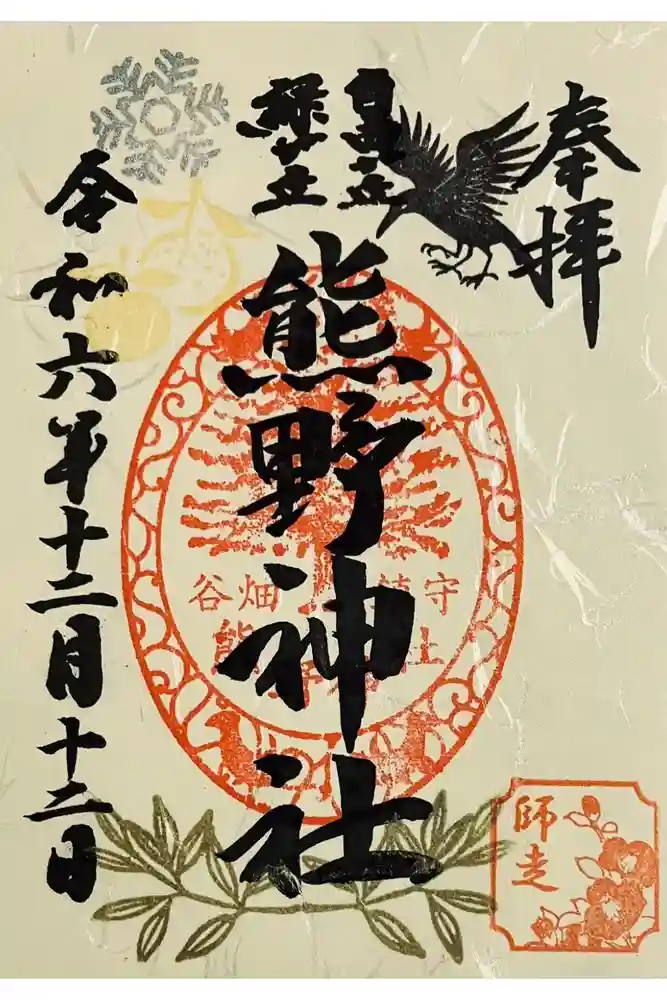 奉拝
熊野神社
令和六年十二月十二日
谷畑
守
師走